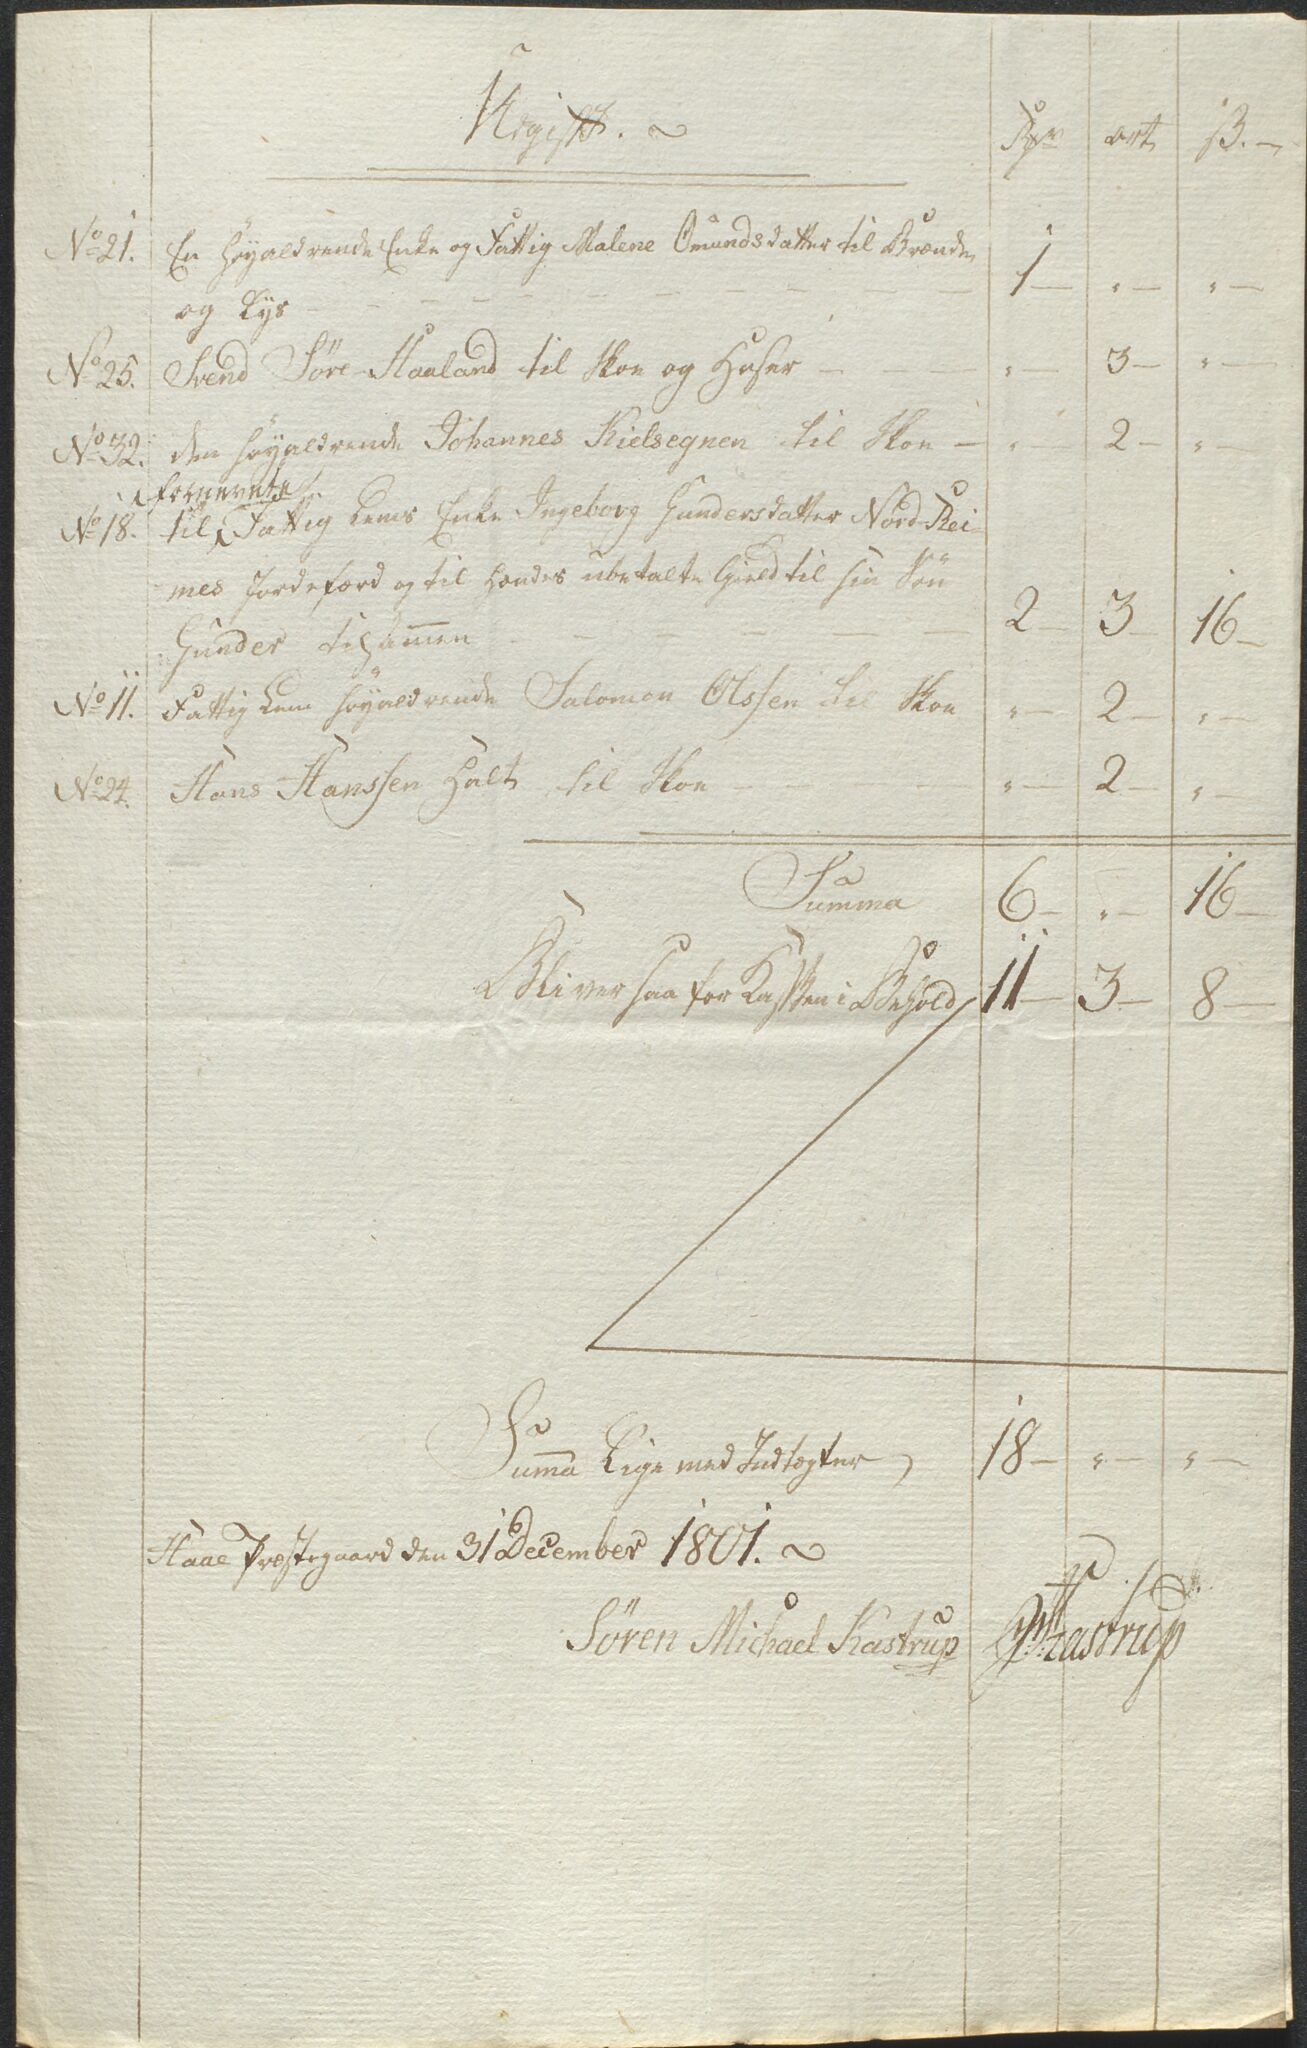 Udgift.
Rdr ort ß.
No 21. En høyaldrende Enke og Fattig Malene Omundsdatter til Brænde
og Lys - 1 - " - " -
No 25. Svend Søre-Haaland til Skoe og Hoser - " - 3 - " -
No 32. den høyaldrende Johannes Kielsegnen til Skoe - " 2 - " -
fornevnte
No 18. til Fattig Lems Enke Ingeborg Gundersdatter Nord-Rei-
mes Jordefærd og til hendes ubetalte Gield til sin Søn
Gunder tilsammen - 2 - 3 - 16 -
No 11. Fattig Lem høyaldrende Salomon Olssen til Skoe " - 2 - " -
No 24. Hans Hanssen Halt til Skoe - " - 2 - " -
Summa 6 - " - 16 -
Bliver saa for Kassen i Behold 11 - 3 - 8 -
Summa Lige med Indtægter 18 - " - " -
Haae Præstegaard den 31 December 1801.
Søren Michael Kastrup Kastrup